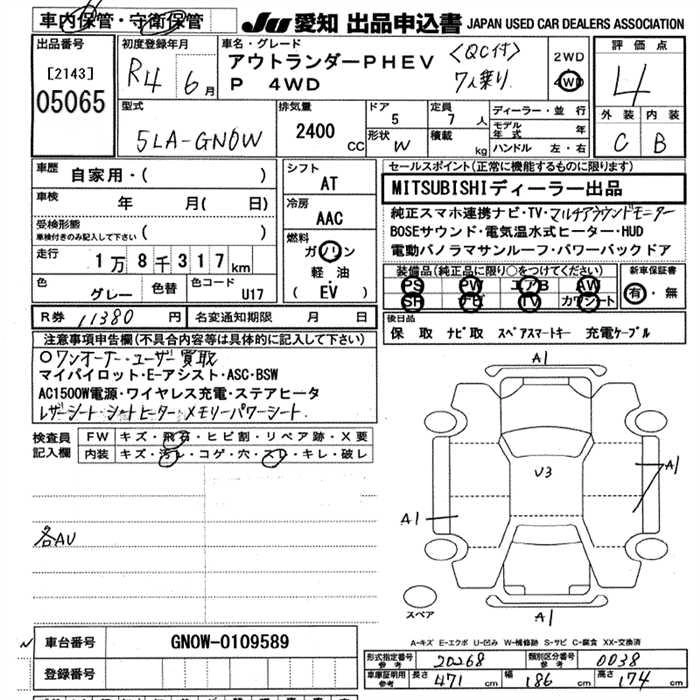 車内保管・守衛保管
JU 愛知 出品申込書 JAPAN USED CAR DEALERS ASSOCIATION
出品番号
[2143]
05065
初度登録年月
R4 6月
車名・グレード
アウトランダーPHEV <QC付>
P 4WD 7人乗り
2WD
4WD
評価点
4
外装 内装
C B
型式
5LA-GN0W
排気量
2400 CC
ドア
5
形状
W
定員
7 人
積載
kg
ディーラー・並行
モデル年式 年
ハンドル 左・右
車歴
自家用・( )
車検
年 月( 日)
受検形態
車検付きのみ記入して下さい ( )
走行
1万8千317km
色
グレー
色替
色コード
U17
シフト
AT
冷房
AAC
燃料
ガソリン
軽油
( EV )
セールスポイント(正常に機能するものに限ります)
MITSUBISHIディーラー出品
純正スマホ連携ナビ・TV・マルチアラウンドモニター
BOSEサウンド・電気温水式ヒーター・HUD
電動パノラマサンルーフ・パワーバックドア
装備品(純正品に限り○をつけてください)
PS PW エアB AW
SR ナビ TV カワシート
新車保証書
有・無
R券 11380 円
名変通知期限 月 日
後日品
保 取 ナビ取 スペアスマートキー 充電ケーブル
注意事項申告欄(不具合内容等は具体的に記入して下さい)
○ワンオーナー・ユーザー買取
マイパイロット・E-アシスト・ASC・BSW
AC1500W電源・ワイヤレス充電・ステアヒータ
レザーシート・シートヒーター・メモリーパワーシート.
検査員記入欄
FW キズ・飛石・ヒビ割・リペア跡・X要
内装 キズ・汚レ・コゲ・穴・スレ・キレ・破レ
各AU
A1
U3
A1
A1
A1
スペア
A-キズ E-エクボ U-凹み W-補修跡 S-サビ C-腐食 XX-交換済
車台番号
GN0W-0109589
登録番号
形式指定番号 参考 20268
類別区分番号 参考 0038
車庫証明用 参考 長さ 471 cm 幅 186 cm 高さ 174 cm